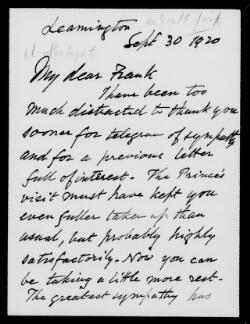 Leamington
Sept 30 1920
My dear Frank
I have been too
much distracted to thank you
sooner for telegram of sympathy
and for a previous letter
full of interest. The Prince's
visit must have kept you
even fuller taken up than
usual, but probably highly
satisfactorily. Now you can
be taking a little more rest.
The greatest sympathy has